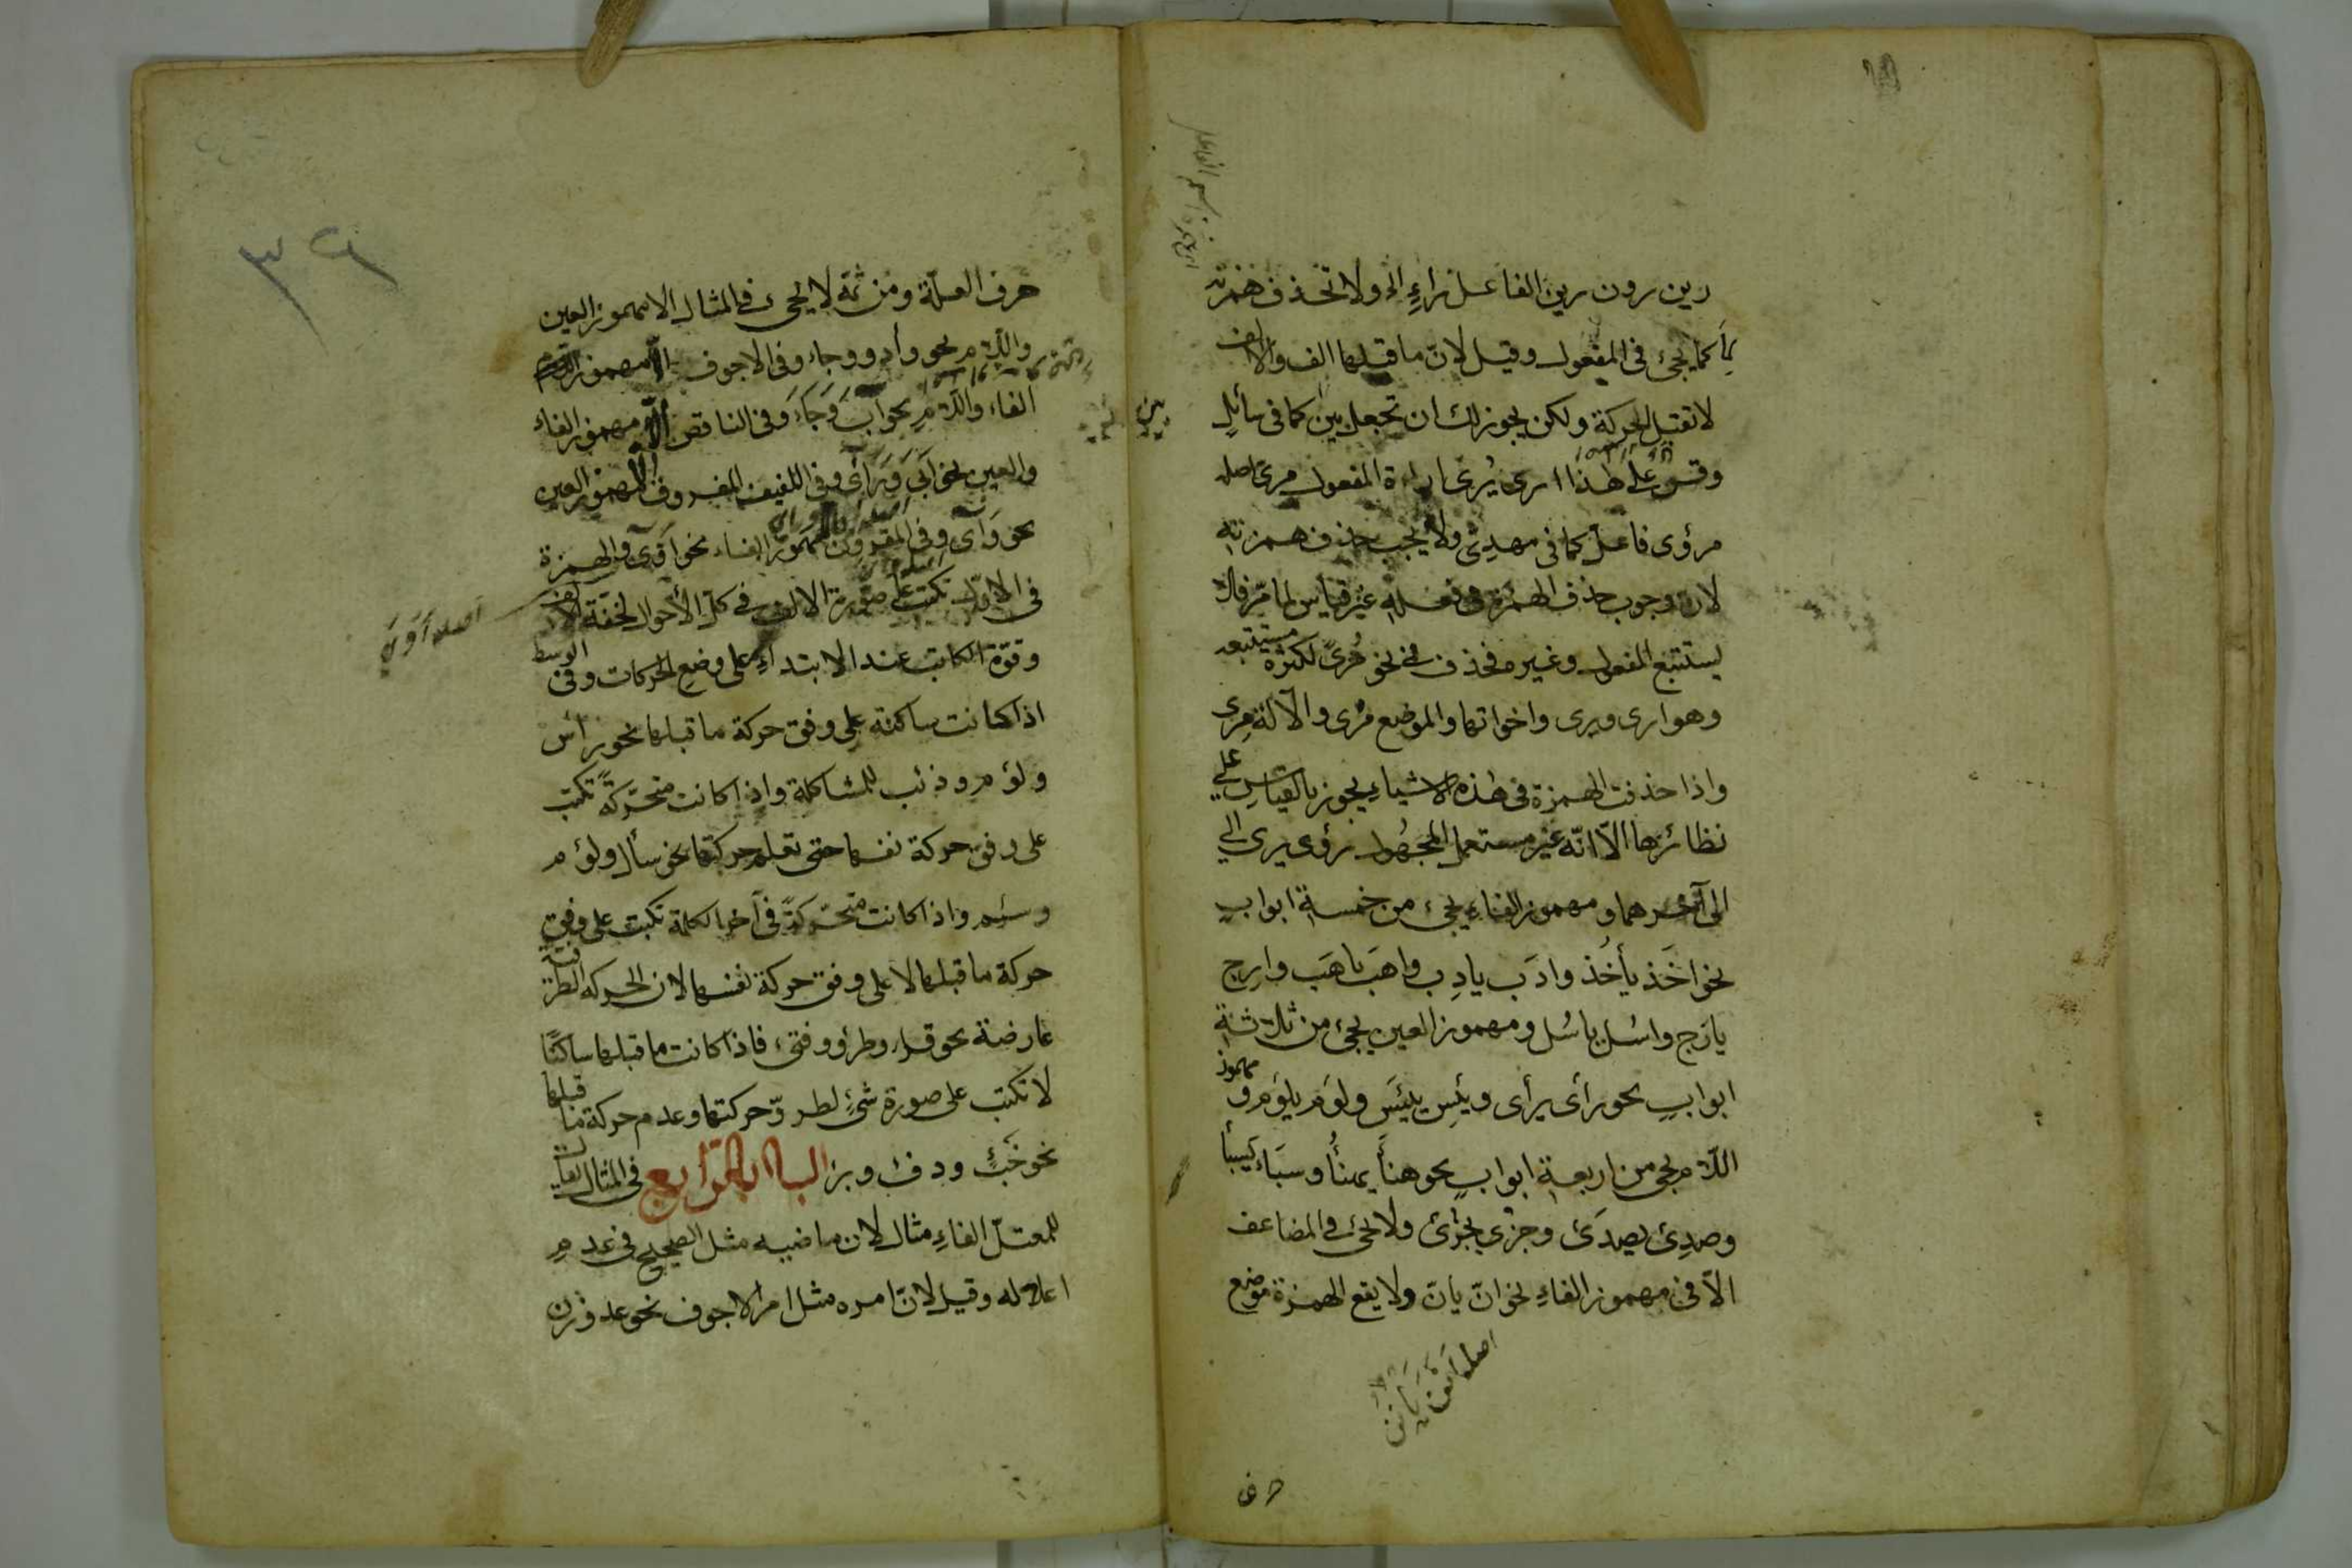 رين رون رين الفاعل راءٍ الخ ولا تحذف همزته
كما يجئ فى المفعول وقيل لانّ ما قبلها الف والالف
لا تقبل الحركة ولكن يجوز لك ان تجعل بين كما فى سائلٍ
بين
وقس على هذا ارى يُرى اراءة المفعول مرئ اصله
مرؤى فاعلّ كما فى مهدىّ ولا يجب حذف همزته
لان وجوب حذف الهمزة فى فعله غير قياس لما مرّ فلا
يستتبع المفعول وغيره فحذف فى نحو مُرىً لكثرة مستتبعه
وهو ارى ويرى واخواتها والموضع مرْى والآلة مِرى
واذا حذفت الهمزة فى هذه الاشياء يجوز بالقياس على
نظائرها الاّ انّه غير مستعمل المجهُول رؤى يرى الى
الى آخرهما ومهموز الفاء يجئ من خمسة ابوابٍ
نحو اخَذ يأخُذ وادَب يادِب واهَب ياهَب وارِج
يازج واسُل ياسُل ومهموز العين يجئ من ثلاثة
ابوابٍ نحو رأى يرأى ويئِس يئيَس ولوُم يلوُم و مهموز
اللام يجئ من اربعة ابوابٍ نحو هنأَ يهنُأ وسبَاء يسبأ
وصدِئ يصدَئ وجزُئ يجزُئ ولا يجئ فى المضاعف
الاّ فى مهموز الفاءِ نحو انّ يانّ ولا يقع الهمزة موضع
حرف
٣٦
حرف العلّة ومن ثمّة لا يجئ فى المثال الا مهموز العين
واللام نحو وأد ووجاء وفى الاجوف الاّ مهموز
الفاء واللام نحو آبَ وَجَاءَ وفى الناقص الاّ مهموز الفاء
والعين نحو ابَى وَرَأى وفى اللفيف المفروق الاّ مهموز العين
نحو وَأى وفى المقرون مهموز الفاء نحو اَوَى والهمزة
فى الاوّل تكتب على صورة الالف فى كلّ الأحوال لخفّة الالف
اصله اَوَىَ
وقوّة الكاتب عند الابتداءِ على وضع الحركات وفى الوسط
اذا كانت ساكنة على وفق حركة ما قبلها نحو رأس
ولؤم وذئب للمشاكلة واذا كانت متحرّكةً تكتب
على وفق حركة نفسها حتى تعلم حركتها نحو سأل ولؤم
وسئم واذا كانت متحرّكةً فى آخر الكلمة تكتب على وفق
حركة ما قبلها لا على وفق حركة نفسها لان الحركة الطرفية
عارضة نحو قراء وطرؤ وفتئ فاذا كانت ما قبلها ساكنًا
لا تكتب على صورة شئٍ لطروّ حركتها وعدم حركة ما قبلها
نحو خَبءٍ ودفء وبرء الباب الرابع فى المثال يقال
للمعتلّ الفاءِ مثال لان ماضيه مثل الصحيح فى عدم
اعلاله وقيل لانّ امره مثل امر الاجوف نحو عد وزن